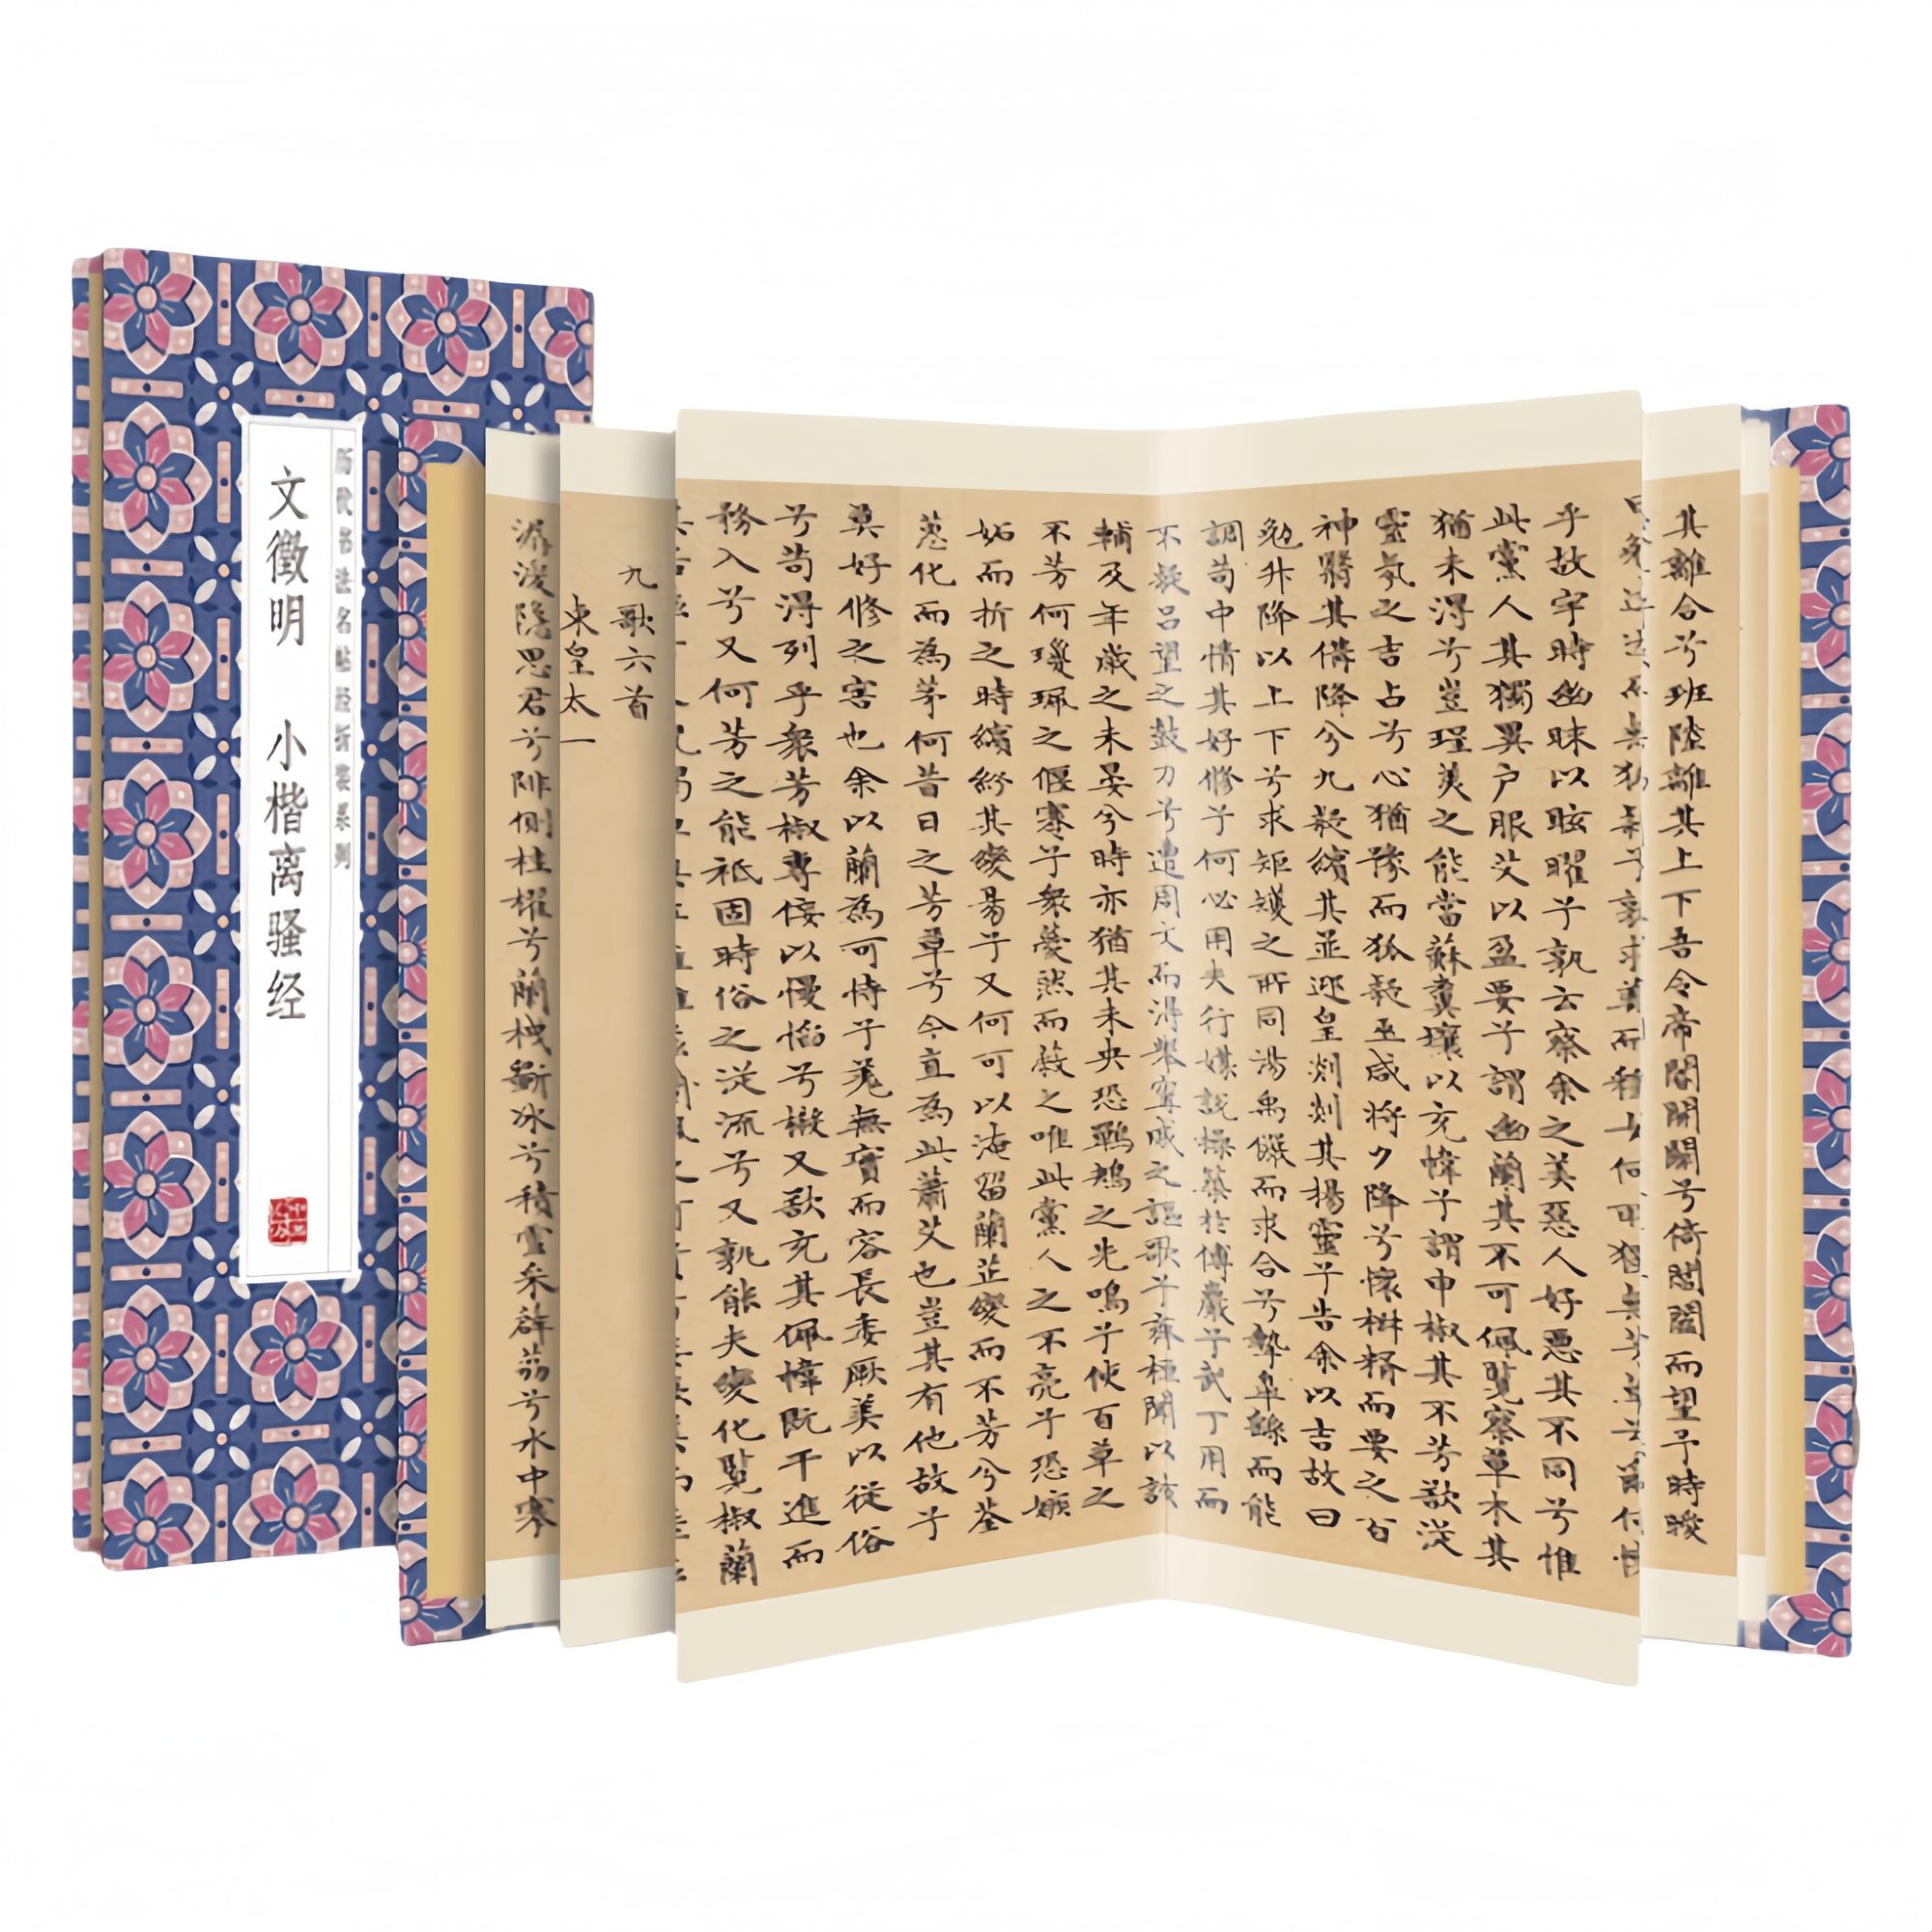 历代书法名帖经折装系列
文徵明 小楷离骚经
其離合兮班陸離其上下吾令帝閽開關兮倚閶闔而望予時曖
乎故宇時幽昧以眩曜兮孰云察余之美惡人好惡其不同兮惟
此黨人其獨異户服艾以盈要兮謂幽蘭其不可佩覽察草木其
猶未得兮豈珵美之能當蘇糞壤以充幃兮謂申椒其不芳欲從
靈氛之吉占兮心猶豫而狐疑巫咸將夕降兮懷椒糈而要之百
神翳其備降兮九疑繽其並迎皇剡剡其揚靈兮告余以吉故曰
勉升降以上下兮求矩矱之所同湯禹儼而求合兮摯皋繇而能
調苟中情其好修兮何必用夫行媒說操築於傅巖兮武丁用而
不疑呂望之鼓刀兮遭周文而得舉甯戚之謳歌兮齊桓聞以該
輔及年歲之未晏兮時亦猶其未央恐鵜鴂之先鳴兮使百草之
不芳何瓊珮之偃蹇兮衆薆然而蔽之唯此黨人之不亮兮恐嫉
妬而折之時繽紛其變易兮又何可以淹留蘭芷變而不芳兮荃
蕙化而為茅何昔日之芳草兮今直為此蕭艾也豈其有他故兮
莫好修之害也余以蘭為可恃兮羌無實而容長委厥美以從俗
兮苟得列乎衆芳椒專佞以慢慆兮樧又欲充其佩幃既干進而
務入兮又何芳之能祗固時俗之從流兮又孰能夫變化覽椒蘭
九歌六首
東皇太一
潺湲隱思君兮陫側桂櫂兮蘭枻斲冰兮積雪采薜荔兮水中搴